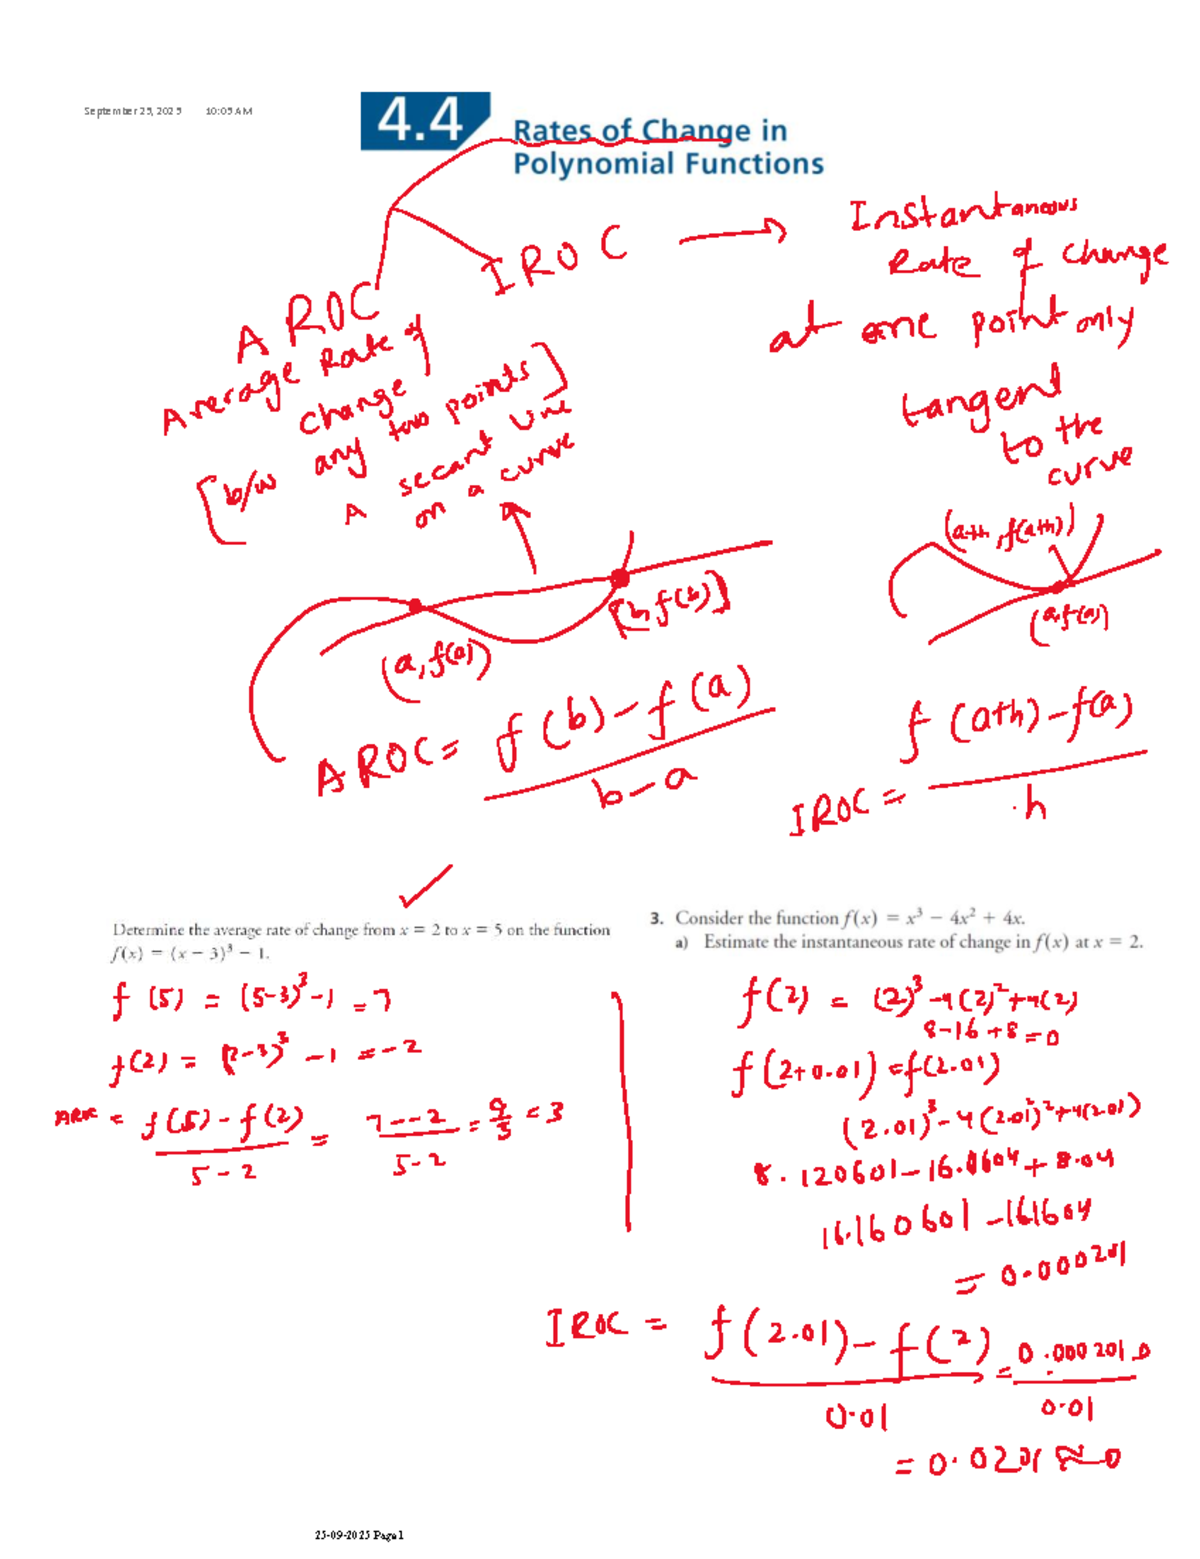 September 25, 2025 10:05 AM
4.4 Rates of Change in
Polynomial Functions
AROC
Average Rate of
change
[b/w any two points]
A secant line
on a curve
IROC → Instantaneous
Rate of change
at one point only
tangent
to the
curve
(a, f(a))
[b, f(b)]
AROC = f(b) - f(a)
b - a
(a+h, f(a+h))
(a, f(a))
IROC = f(a+h) - f(a)
h
Determine the average rate of change from x = 2 to x = 5 on the function
f(x) = (x − 3)³ − 1.
f(5) = (5-3)³ - 1 = 7
f(2) = (2-3)³ - 1 = -2
AROC = f(5) - f(2) = 7 - -2 = 9 = 3
5-2 5-2 3
3. Consider the function f(x) = x³ − 4x² + 4x.
a) Estimate the instantaneous rate of change in f(x) at x = 2.
f(2) = (2)³ - 4(2)² + 4(2)
8 - 16 + 8 = 0
f(2+0.01) = f(2.01)
(2.01)³ - 4(2.01)² + 4(2.01)
8.120601 - 16.1604 + 8.04
16.160601 - 161604
= 0.000201
IROC = f(2.01) - f(2) = 0.000201-0
0.01 0.01
= 0.0201 ≈ 0
25-09-2025 Page 1